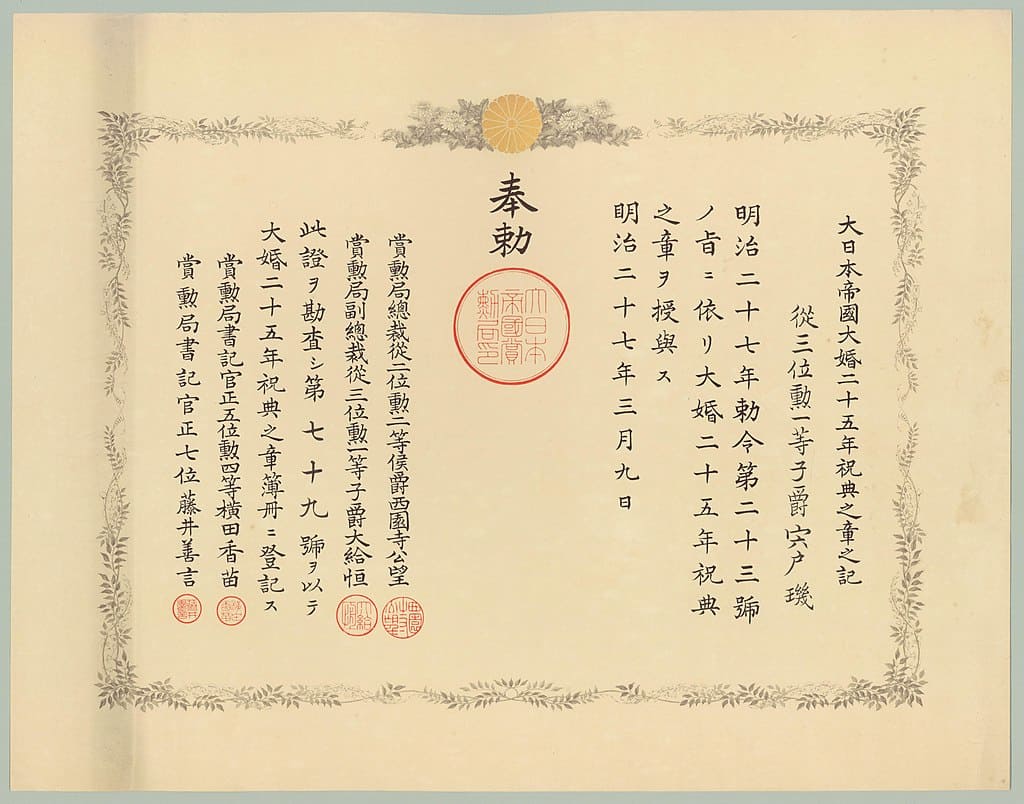 大日本帝國大婚二十五年祝典之章之記
從三位勲一等子爵宍戸璣
明治二十七年勅令第二十三號
ノ旨ニ依リ大婚二十五年祝典
之章ヲ授與ス
明治二十七年三月九日
奉勅
大日本
帝國賞
勳局印
賞勲局總裁從二位勲二等侯爵西園寺公望
賞勲局副總裁從三位勲一等子爵大給恒
此證ヲ勘査シ第七十九號ヲ以テ
大婚二十五年祝典之章簿冊ニ登記ス
賞勲局書記官正五位勲四等横田香苗
賞勲局書記官正七位藤井善言